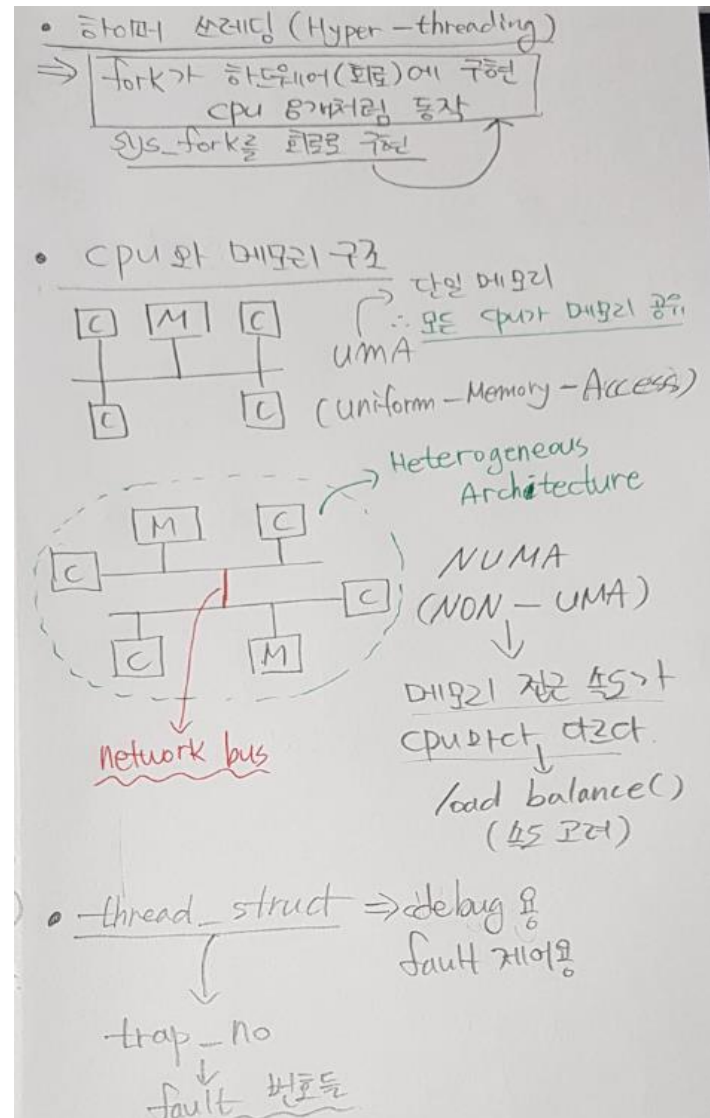 • 하이퍼 쓰레딩 (Hyper-threading)
⇒ fork가 하드웨어(회로)에 구현
cpu 8개처럼 동작
sys_fork를 회로로 구현
• cpu와 메모리 구조
C M C
C C
단일 메모리
∴ 모든 cpu가 메모리 공유
UMA
(Uniform-Memory-Access)
Heterogeneous
Architecture
M C
C
C
C M
network bus
NUMA
(NON-UMA)
메모리 접근 속도가
cpu마다 다르다.
load balance()
(속도 고려)
• thread_struct ⇒ debug 용
fault 제어용
trap_no
fault 번호들